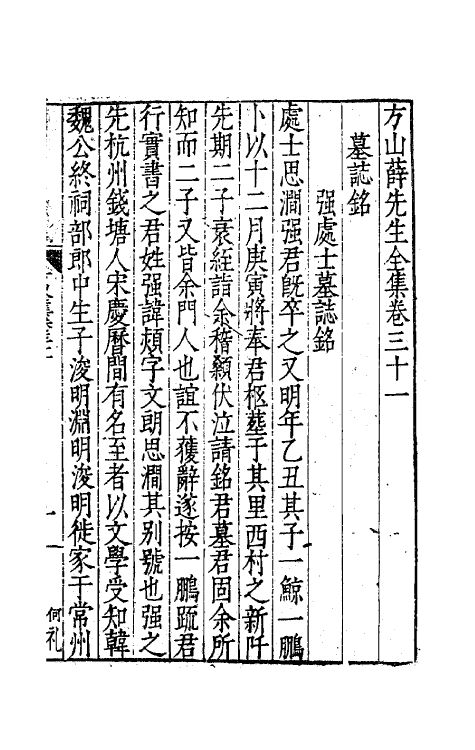 方山薛先生全集卷三十一
墓誌銘
强處士墓誌銘
處士思澗强君旣卒之又明年乙丑其子一鯨一鵬
卜以十二月庚寅將奉君柩塟于其里西村之新阡
先期二子衰絰詣余稽顙伏泣請銘君墓君固余所
知而二子又皆余門人也誼不獲辭遂按一鵬䟽君
行實書之君姓强諱頍字文朗思澗其别號也强之
先杭州錢塘人宋慶曆間有名至者以文學受知韓
魏公終祠部郎中生子浚明淵明浚明徙家于常州
何礼